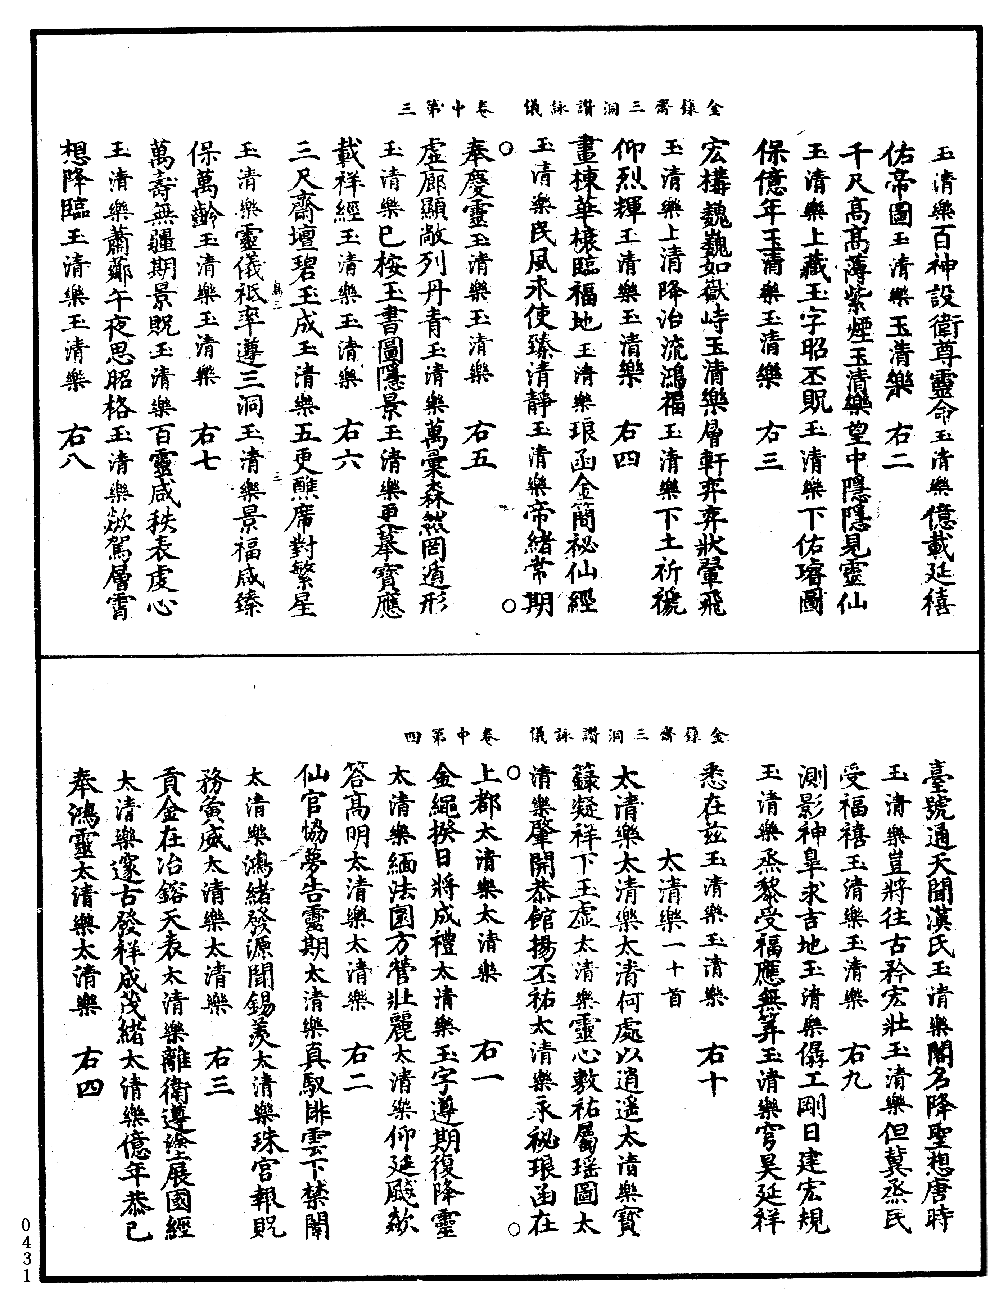 金籙齋三洞讚詠儀　卷中第三
玉清樂百神設衛尊靈命玉清樂億載延禧
佑帝圖玉清樂玉清樂　右二
千尺高高薄紫煙玉清樂望中隱隱見靈仙
玉清樂上藏玉字昭丕貺玉清樂下佑璿圖
保億年玉清樂玉清樂　右三
宏構巍巍如嶽峙玉清樂層軒弈弈狀翬飛
玉清樂上清降治流鴻福玉清樂下土祈禠
仰烈輝玉清樂玉清樂　右四
畫棟華榱臨福地玉清樂琅函金簡祕仙經
玉清樂民風永使臻清靜玉清樂帝緒常期
奉慶靈玉清樂玉清樂　右五
虛廊顯敞列丹青玉清樂萬彙森然罔遁形
玉清樂已桉玉書圖隱景玉清樂更摹寶應
載祥經玉清樂玉清樂　右六
三尺齋壇碧玉成玉清樂五更醮席對繁星
玉清樂靈儀祇率遵三洞玉清樂景福咸臻
保萬齡玉清樂玉清樂　右七
萬壽無疆期景貺玉清樂百靈咸秩表虔心
玉清樂蕭薌午夜思昭格玉清樂歘駕層霄
想降臨玉清樂玉清樂　右八
金籙齋三洞讚詠儀　卷中第四
臺號通天聞漢氏玉清樂閣名降聖想唐時
玉清樂豈將往古矜宏壯玉清樂但冀烝民
受福禧玉清樂玉清樂　右九
測影神皐求吉地玉清樂僝工剛日建宏規
玉清樂烝黎受福應無筭玉清樂穹昊延祥
悉在兹玉清樂玉清樂　右十
太清樂一十首
太清樂太清樂太清何處以逍遥太清樂寶
籙凝祥下玉虛太清樂靈心敷祐屬瑶圖太
清樂肇開恭館揚丕祐太清樂永祕琅函在
上都太清樂太清樂　右一
金繩揆日將成禮太清樂玉字遵期復降靈
太清樂緬法圓方營壯麗太清樂仰延飈歘
答高明太清樂太清樂　右二
仙官恊夢告靈期太清樂真馭𨽻雲下禁闈
太清樂鴻緒發源聞錫羨太清樂珠宫報貺
務寅威太清樂太清樂　右三
貢金在冶鎔天表太清樂離衛遵塗展國經
太清樂邃古發祥成茂緒太清樂億年恭己
奉鴻靈太清樂太清樂　右四
0431